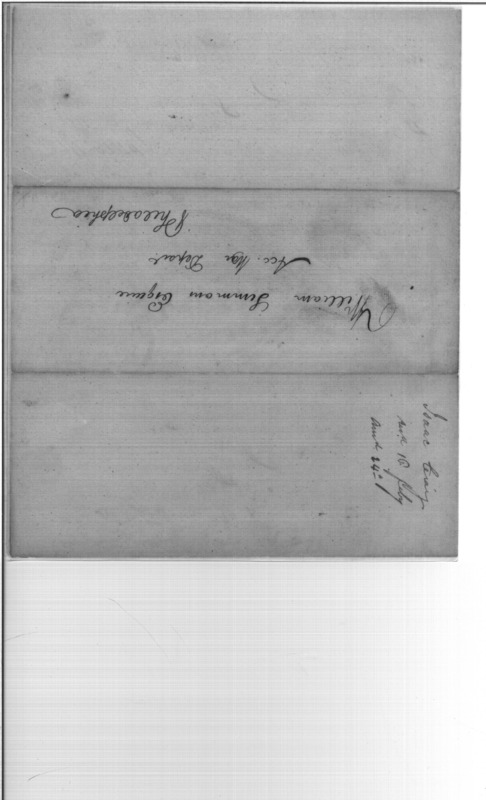 William Simmons Esquire
Acc. War Depart.
Philadelphia
Isaac Craig
10 July
24th